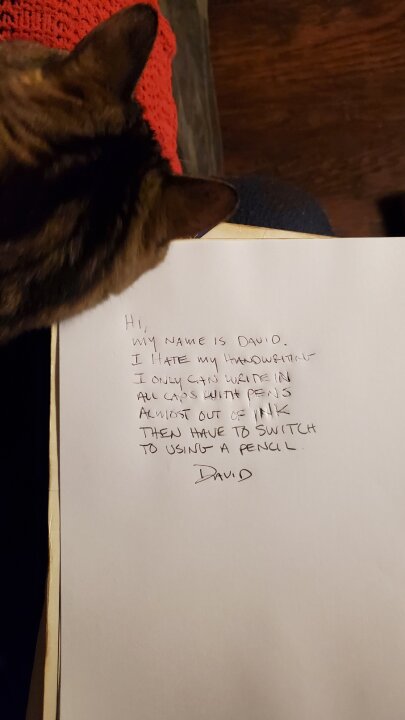 HI,
MY NAME IS DAVID.
I HATE MY HANDWRITING
I ONLY CAN WRITE IN
ALL CAPS WITH PENS
ALMOST OUT OF INK
THEN HAVE TO SWITCH
TO USING A PENCIL.
DAVID